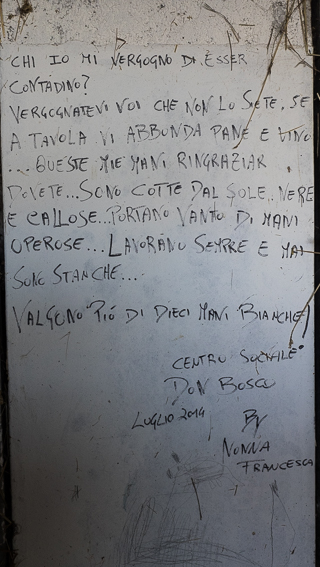 CHI IO MI VERGOGNO DI ESSER
CONTADINO?
VERGOGNATEVI VOI CHE NON LO SIETE, SE
A TAVOLA VI ABBONDA PANE E VINO
...QUESTE MIE MANI RINGRAZIAR
DOVETE...SONO COTTE DAL SOLE, NERE
E CALLOSE...PORTANO VANTO DI MANI
OPEROSE...LAVORANO SEMPRE E MAI
SONO STANCHE...
VALGONO PIÓ DI DIECI MANI BIANCHE!
CENTRO SOCIALE
DON BOSCO
LUGLIO 2014
BY
NONNA
FRANCESCA